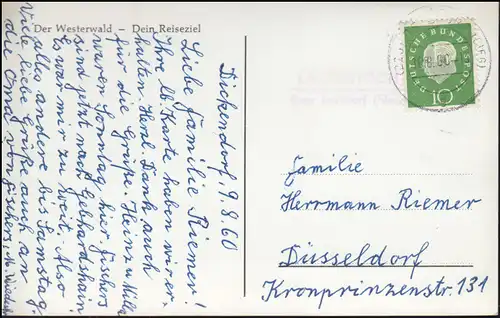 Der Westerwald – Dein Reiseziel
Dickendorf, 9.8.60
Liebe Familie Riemer!
Ihre lb. Karte haben wir er-
halten. Herzl. Dank auch
für die Grüße. Heinz u. Milla
waren Sonntag hier. Fischers
sind jetzt nach Gebhardshain
Es war mir zu weit. Also
alles andere bis Samstag.
Viele liebe Grüße auch an
die Oma von Fischers,
DEUTSCHE BUNDESPOST
10
Familie
Herrmann Riemer
Düsseldorf
Kronprinzenstr. 131